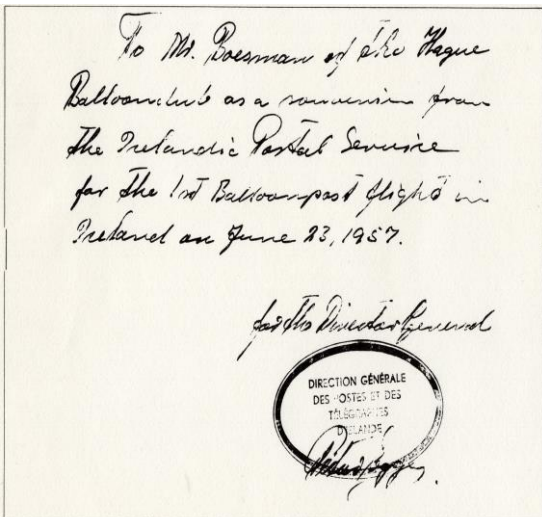 To Mr. Boesman of the Hague
Balloonclub as a souvenir from
the Icelandic Postal Service
for the 1st Balloonpost flight in
Iceland on June 23, 1957.
for the Director General
DIRECTION GÉNÉRALE
DES POSTES ET DES
TÉLÉGRAPHES
D'ISLANDE